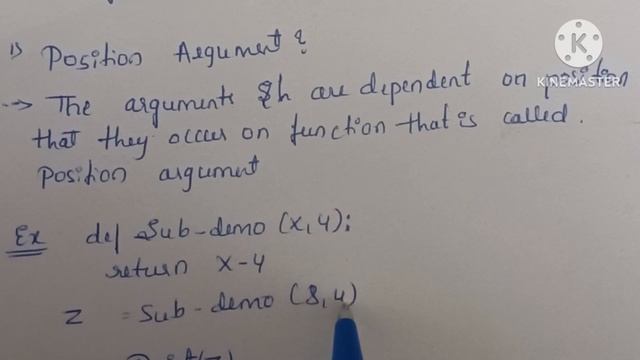 1) Position Argument?
K
KINEMASTER
--> The arguments are dependent on position
that they occur on function that is called.
Position argument
Ex def Sub-demo (x,4):
return x-4
Z = Sub-demo (8,4)